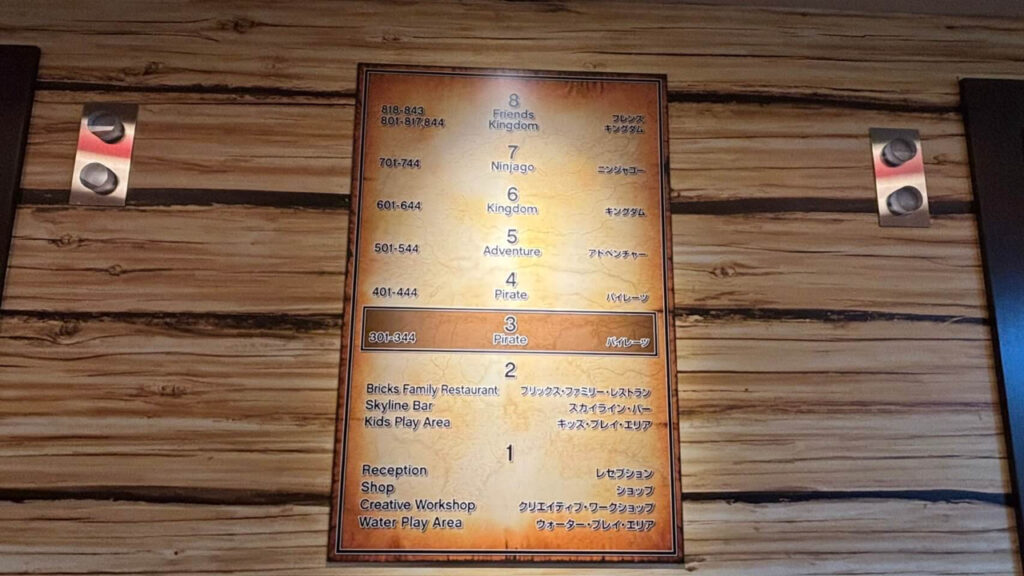 8
818-843
801-817,844
Friends
Kingdom
フレンズ
キングダム
7
701-744 Ninjago ニンジャゴー
6
601-644 Kingdom キングダム
5
501-544 Adventure アドベンチャー
4
401-444 Pirate パイレーツ
3
301-344 Pirate パイレーツ
2
Bricks Family Restaurant ブリックス・ファミリー・レストラン
Skyline Bar スカイライン・バー
Kids Play Area キッズ・プレイ・エリア
1
Reception レセプション
Shop ショップ
Creative Workshop クリエイティブ・ワークショップ
Water Play Area ウォーター・プレイ・エリア